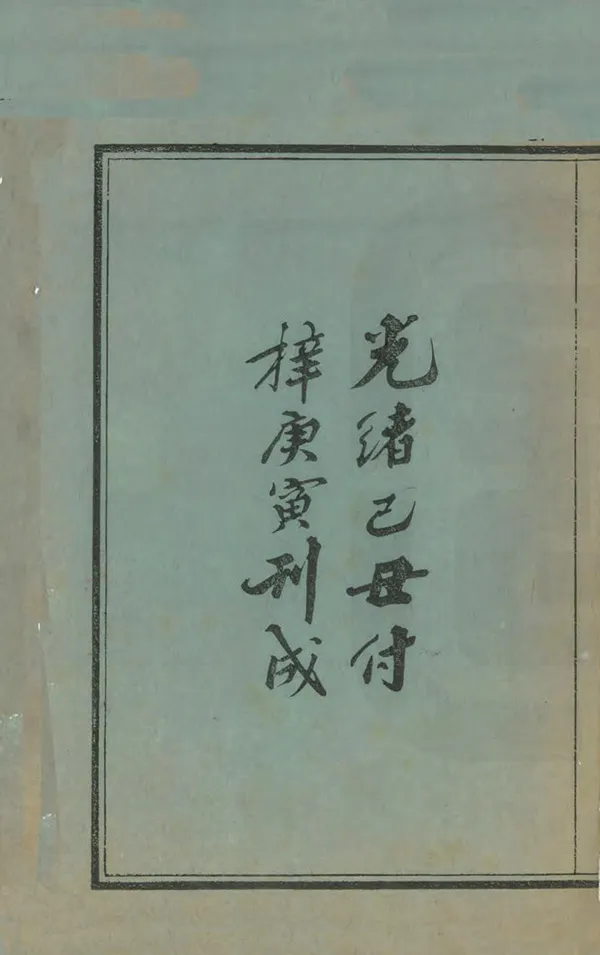 光緒己丑付
梓庚寅刊成